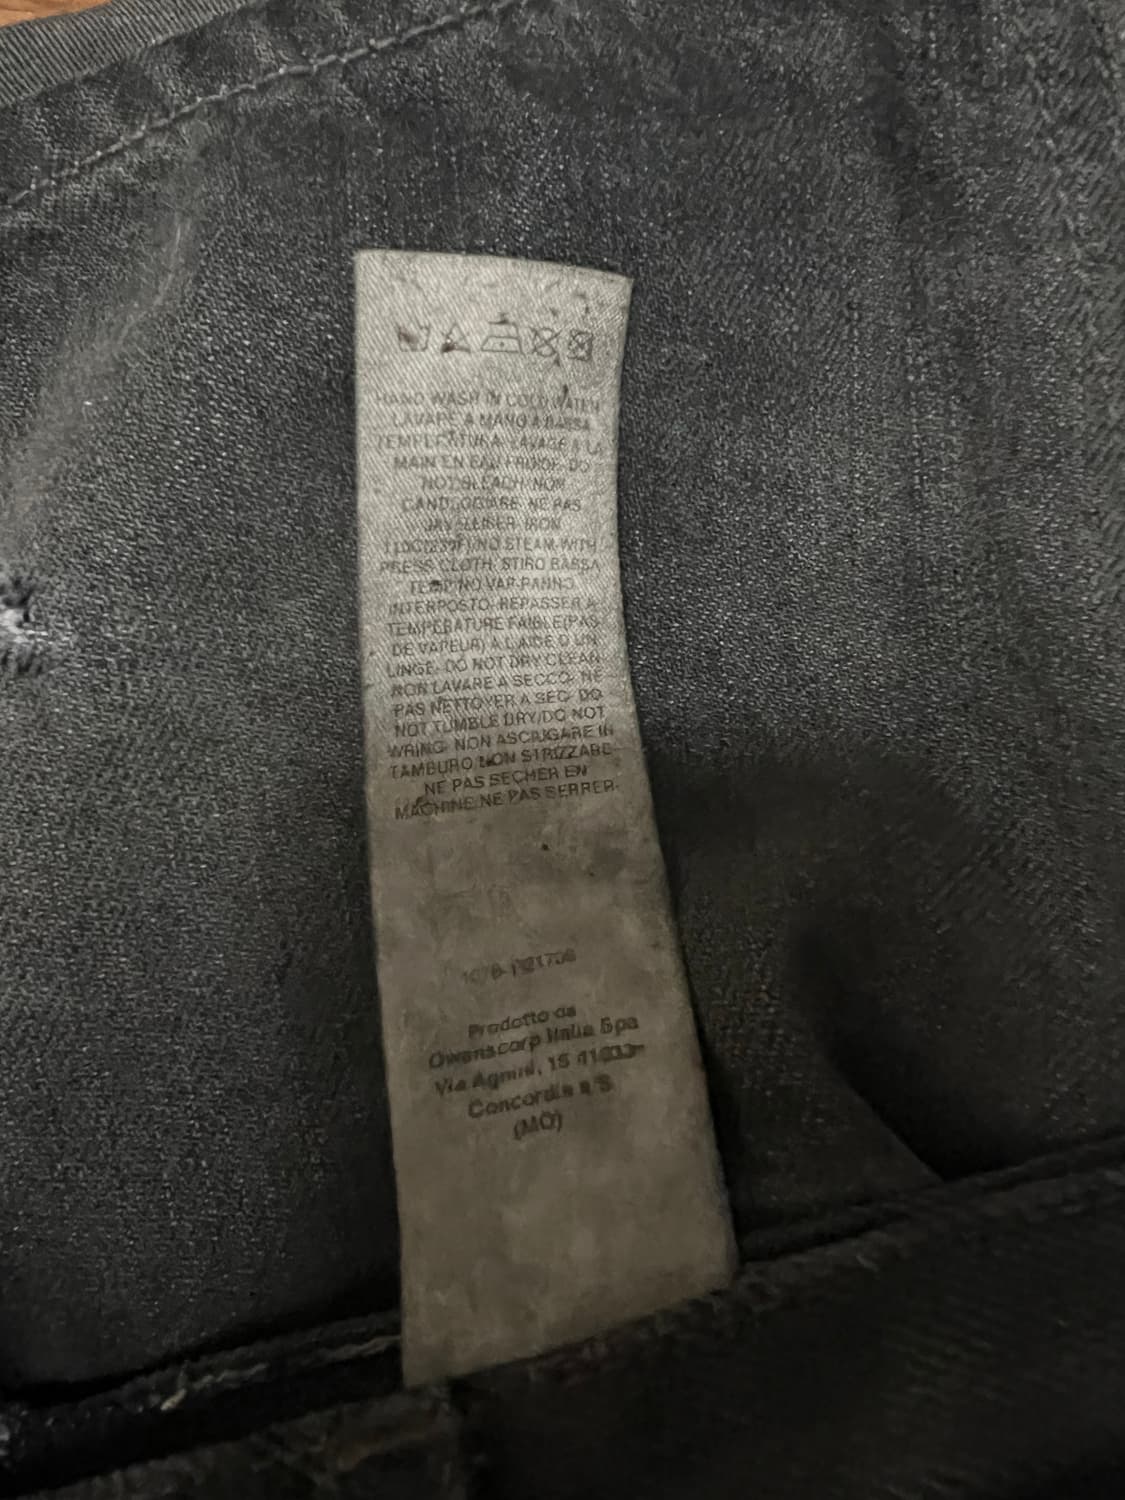 HAND WASH IN COLD WATER
LAVARE A MANO A BASSA
TEMPERATURA LAVAGE A LA
MAIN EN EAU FROIDE DO
NOT BLEACH NON
CANDEGGIARE NE PAS
JAVELLISER IRON
NO STEAM WITH
PRESS CLOTH. STIRO BASSA
TEMP NO VAP-PANNO
INTERPOSTO. REPASSER A
TEMPERATURE FAIBLE(PAS
DE VAPEUR) A L'AIDE D'UN
LINGE. DO NOT DRY CLEAN
NON LAVARE A SECCO. NE
PAS NETTOYER A SEC DO
NOT TUMBLE DRY/DO NOT
WRING. NON ASCIUGARE IN
TAMBURO NON STRIZZARE
NE PAS SECHER EN
MACHINE NE PAS SERRER
Prodotto da
Owenscorp Italia Spa
Via 15
Concordia s/S
(MO)